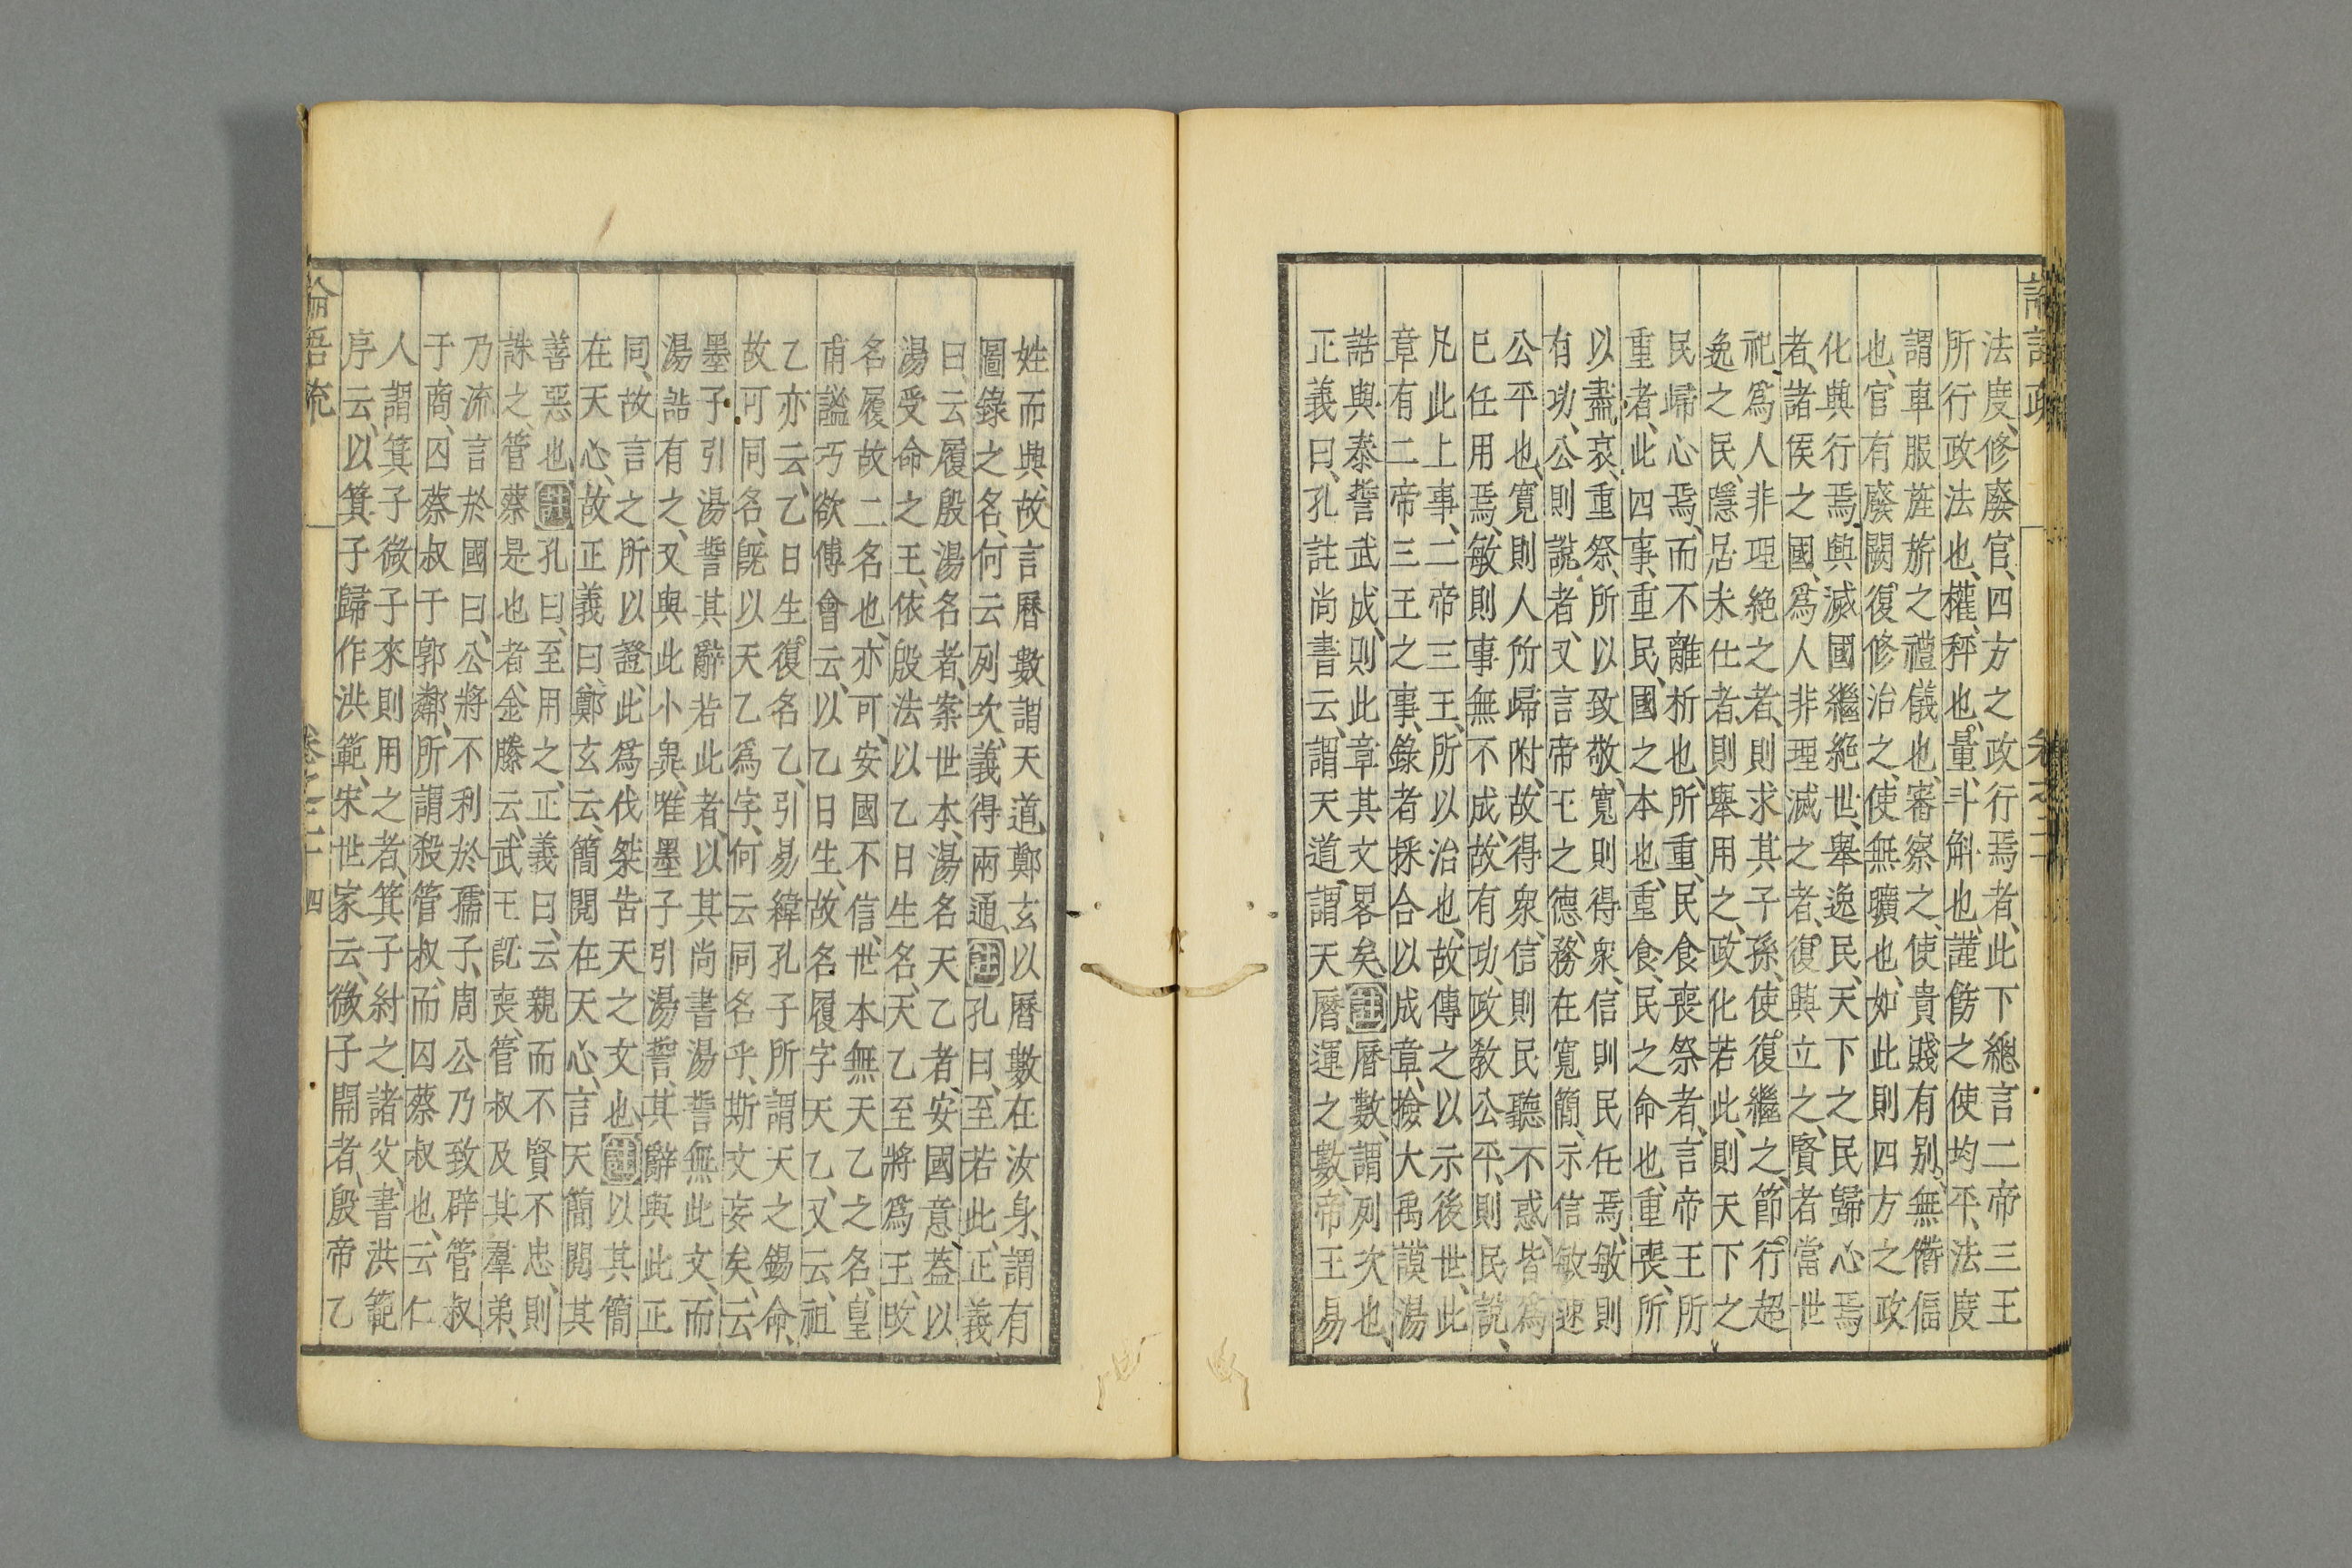 法度、修廢官、四方之政行焉者、此下總言二帝三王
所行政法也、權、秤也。量、斗斛也、謹飭之使均平、法度
謂車服旌旂之禮儀也、審察之、使貴賤有别。無僭偪
也、官有廢闕。復修治之、使無曠也、如此則四方之政
化興行焉、興滅國繼絶世、舉逸民、天下之民歸心焉
者、諸侯之國、爲人非理滅之者、復興立之、賢者當世
祀爲人非理絶之者、則求其子孫、使復繼之、節行超
逸之民、隱居未仕者、則舉用之、政化若此、則天下之
民歸心焉、而不離析也、所重、民食喪祭者、言帝王所
重者、此四事、重民、國之本也、重食、民之命也、重喪、所
以盡哀、重祭、所以致敬、寬則得衆、信則民任焉、敏則
有功、公則說者、又言帝王之德、務在寬簡、示信敏速
公平也、寬則人所歸附、故得衆、信則民聽不惑、皆爲
已任用焉、敏則事無不成、故有功、政教公平、則民說、
凡此上事、二帝三王、所以治也、故傳之以示後世、此
章有二帝三王之事、錄者採合以成章、撿大禹謨湯
誥與泰誓武成、則此章其文畧矣、註曆數、謂列次也、
正義曰、孔註尚書云、謂天道、謂天曆運之數、帝王易
姓而興、故言曆數謂天道、鄭玄以曆數在汝身、謂有
圖錄之名、何云列次、義得兩通、註孔曰、至若此、正義
曰、云履殷湯名者、案世本、湯名天乙者、安國意、蓋以
湯受命之王、依殷法以乙日生名、天乙至將爲王、改
名履故二名也、亦可、安國不信、世本無天乙之名、皇
甫謐巧欲傅會云、以乙日生、故名履字天乙、又云、祖
乙亦云、乙日生。復名乙、引易緯孔子所謂天之錫命、
故可同名、既以天乙爲字、何云同名乎、斯文妄矣、云
墨子引湯誓其辭若此者、以其尚書湯誓無此文、而
湯誥有之、又與此小異、唯墨子引湯誓、其辭與此正
同、故言之所以證、此爲伐桀告天之文也、註以其簡
在天心、故正義曰、鄭玄云、簡閱在天心、言天簡閱其
善惡也、註孔曰、至用之、正義曰、云親而不賢不忠、則
誅之、管蔡是也者、金縢云、武王既喪、管叔及其羣弟、
乃流言於國曰、公將不利於孺子、周公乃致辟管叔
于商、囚蔡叔于郭鄰、所謂殺管叔、而囚蔡叔也、云仁
人謂箕子微子來則用之者、箕子紂之諸父、書洪範
序云、以箕子歸作洪範、宋世家云、微子開者、殷帝乙
論語疏 卷之二十 四